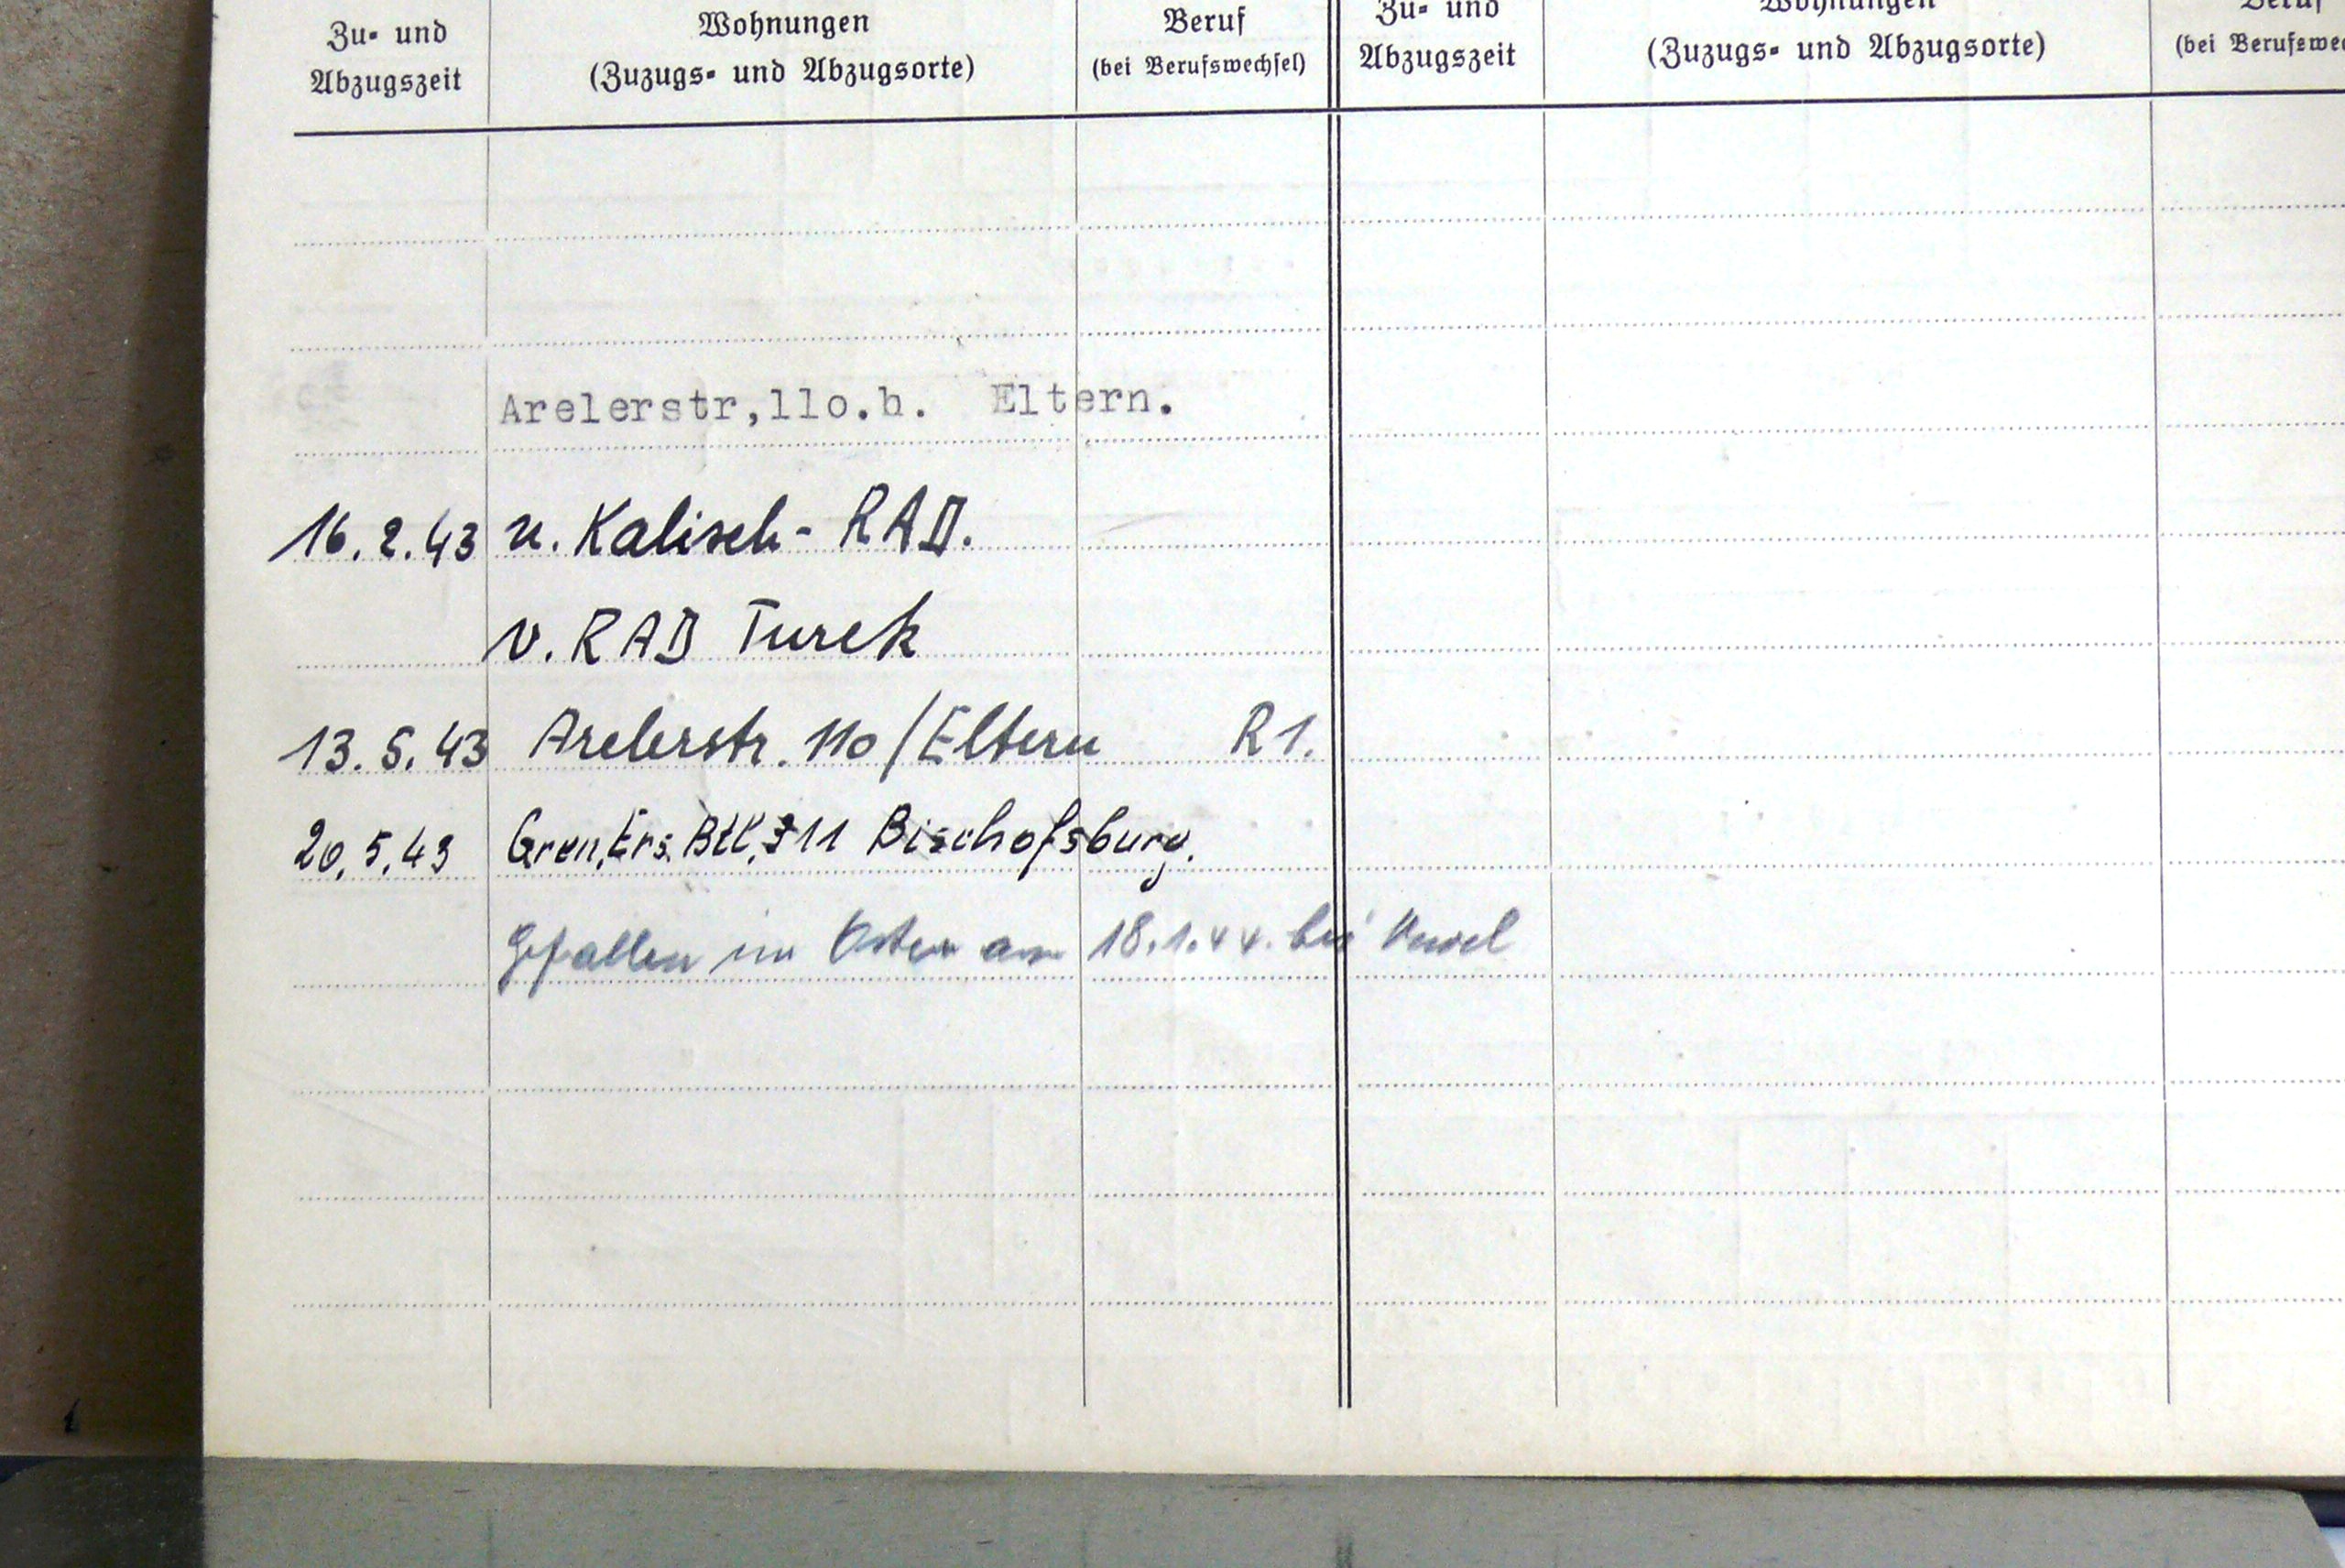 Zu- und
Abzugszeit
Wohnungen
(Zuzugs- und Abzugsorte)
Beruf
(bei Berufswechsel)
Zu- und
Abzugszeit
Wohnungen
(Zuzugs- und Abzugsorte)
Beruf
(bei Berufswec
Arelerstr,llo.b. Eltern.
16.2.43 n. Kalisch - RAD.
v. RAD Turek
13.5.43 Arelerstr. 110/Eltern R1.
20.5.43 Gren,Ers.Btl,311 Bischofsburg.
Gefallen im Osten am 18.1.44. bei